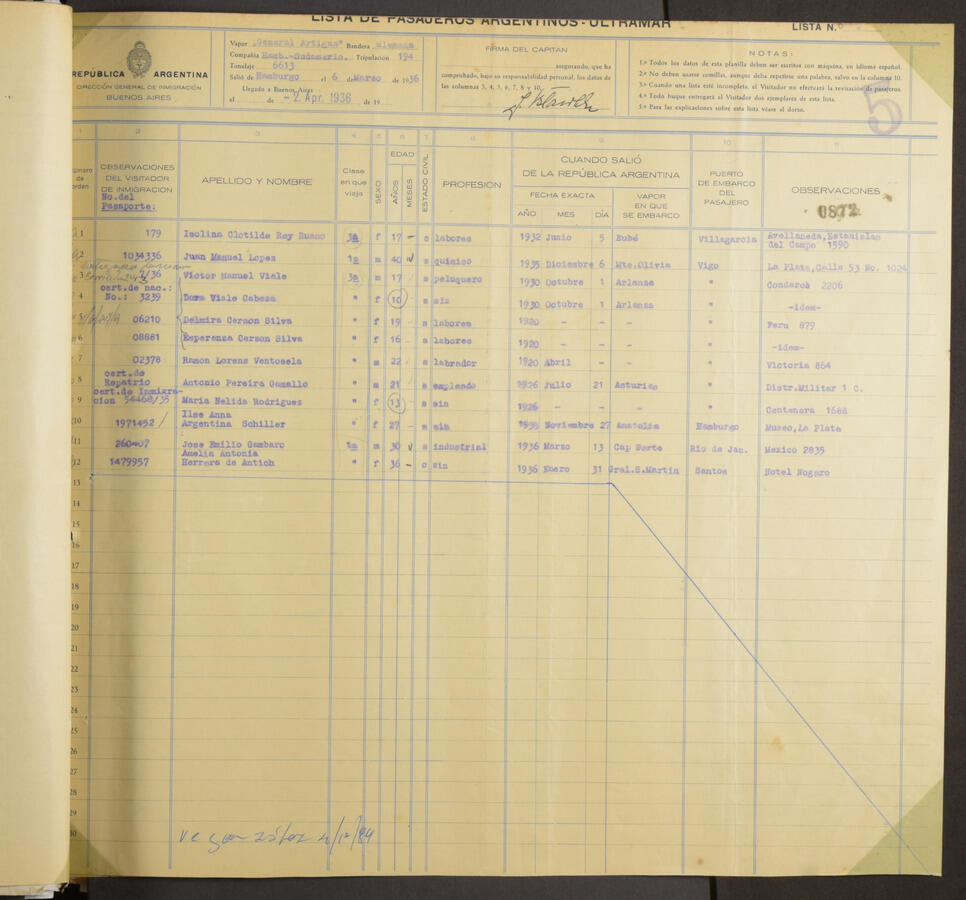 LISTA DE PASAJEROS ARGENTINOS - ULTRAMAR
LISTA N.
REPÚBLICA ARGENTINA
DIRECCIÓN GENERAL DE INMIGRACIÓN
BUENOS AIRES
Vapor „General Artigas" Bandera alemana
Compañía Hamb.-Sudameric. Tripulación 194
Tonelaje 6613
Salió de Hamburgo el 6 de Marzo de 1936
Llegado a Buenos Aires
el - 2 Apr. 1936 de 19
FIRMA DEL CAPITAN
asegurando, que ha
comprobado, bajo su responsabilidad personal, los datos de
las columnas 3, 4, 5, 6, 7, 8 y 10.
NOTAS:
1.ª Todos los datos de esta planilla deben ser escritos con máquina, en idioma español.
2.ª No deben usarse comillas, aunque deba repetirse una palabra, salvo en la columna 10.
3.ª Cuando una lista esté incompleta, el Visitador no efectuará la revisación de pasajeros.
4.ª Todo buque entregará al Visitador dos ejemplares de esta lista.
5.ª Para las explicaciones sobre esta lista véase al dorso.
5
1 2 3 4 5 6 7 8 9 10 11
Número de orden
OBSERVACIONES DEL VISITADOR DE INMIGRACION
No. del Pasaporte:
APELLIDO Y NOMBRE
Clase en que viaja
SEXO
EDAD
AÑOS
MESES
ESTADO CIVIL
PROFESION
CUANDO SALIÓ DE LA REPÚBLICA ARGENTINA
FECHA EXACTA
AÑO MES DÍA
VAPOR EN QUE SE EMBARCO
PUERTO DE EMBARCO DEL PASAJERO
OBSERVACIONES
0872
1 179 Isolina Clotilde Rey Ruano 3a f 17 - s labores 1932 Junio 5 Bubé Villagarcia Avellaneda, Estanislao
del Campo 1590
2 1034336 Juan Manuel Lopez 1a m 40 s quimico 1935 Diciembre 6 Mte.Olivia Vigo La Plata, Calle 53 No. 1024
3 7/36 Victor Manuel Viale 3a m 17 s peluquero 1930 Octubre 1 Arlanza " Condarco 2206
cert.de nac.:
4 No.: 3239 Dora Viale Cabeza " f 10 s sin 1930 Octubre 1 Arlanza " -idem-
5 06210 Delmira Cerson Silva " f 19 s labores 1920 - - " Peru 879
6 08881 Esperanza Cerson Silva " f 16 s labores 1920 - - " -idem-
7 02378 Ramon Lorens Ventosela " m 22 s labrador 1920 Abril - " Victoria 864
cert.de
8 Repatrio Antonio Pereira Gamallo " m 21 s empleado 1926 Julio 21 Asturias " Distr.Militar 1 C.
cert.de Inmigra-
9 cion 54468/35 Maria Nelida Rodrigues " f 13 s sin 1926 - - " Centenera 1688
Ilse Anna
10 1971452 / Argentina Schiller " f 27 - s sin 1935 Noviembre 27 Anatolia Hamburgo Museo, La Plata
11 260407 Jose Emilio Gambaro 1a m 30 s industrial 1936 Marzo 13 Cap Norte Rio de Jan. Mexico 2835
Amelia Antonia
12 1479957 Herrera de Antich " f 36 - c sin 1936 Enero 31 Gral.S.Martin Santos Hotel Nogaro
13
14
15
16
17
18
19
20
21
22
23
24
25
26
27
28
29
30